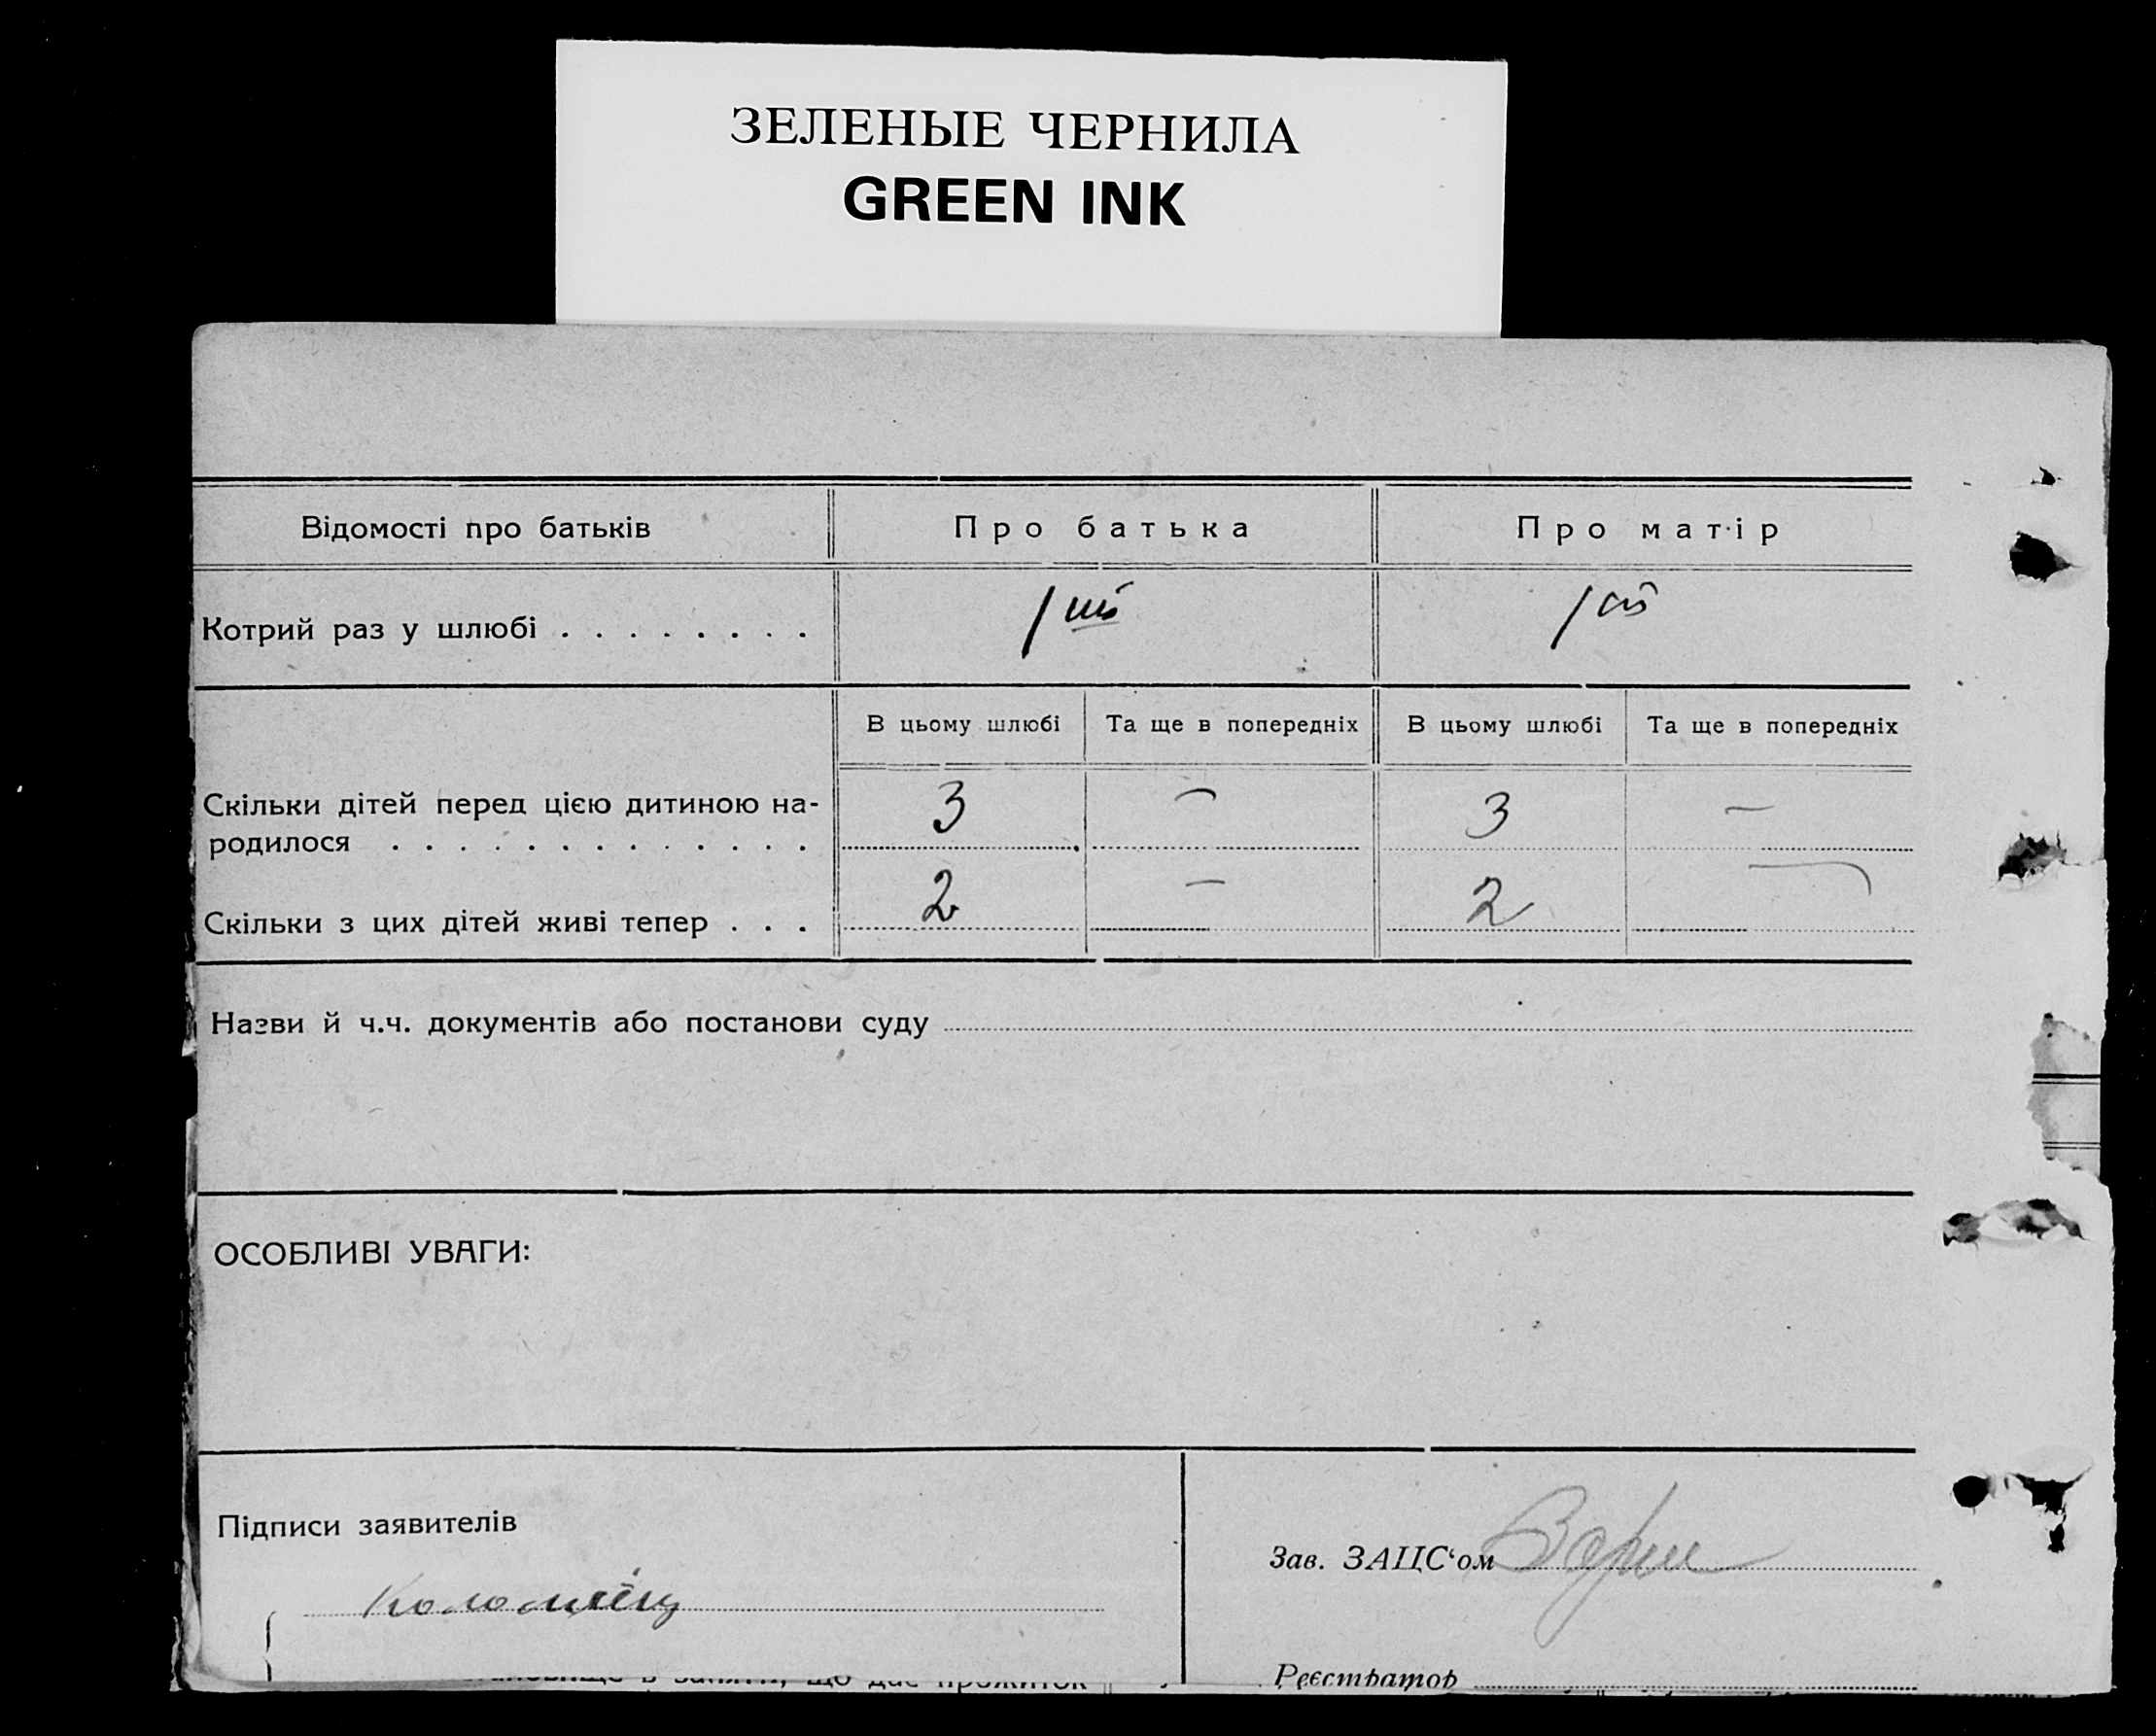 ЗЕЛЕНЫЕ ЧЕРНИЛА
GREEN INK
Відомості про батьків Про батька Про матір
Котрий раз у шлюбі . . . . . . . .
В цьому шлюбі Та ще в попередніх В цьому шлюбі Та ще в попередніх
Скільки дітей перед цією дитиною на- 3 — 3 —
родилося . . . . . . . . . . . . .
Скільки з цих дітей живі тепер . . . 2 — 2 —
Назви й ч.ч. документів або постанови суду
ОСОБЛИВІ УВАГИ:
Підписи заявителів
Коломієць
Зав. ЗАЦС‘ом
Реєстратор
що дає прожиток